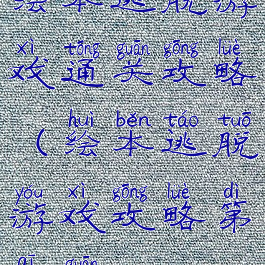 绘本逃脱游
xì tōng guān gōng lüè
戏通关攻略
huì běn táo tuō
（绘本逃脱
yóu xì gōng lüè dì
游戏攻略第